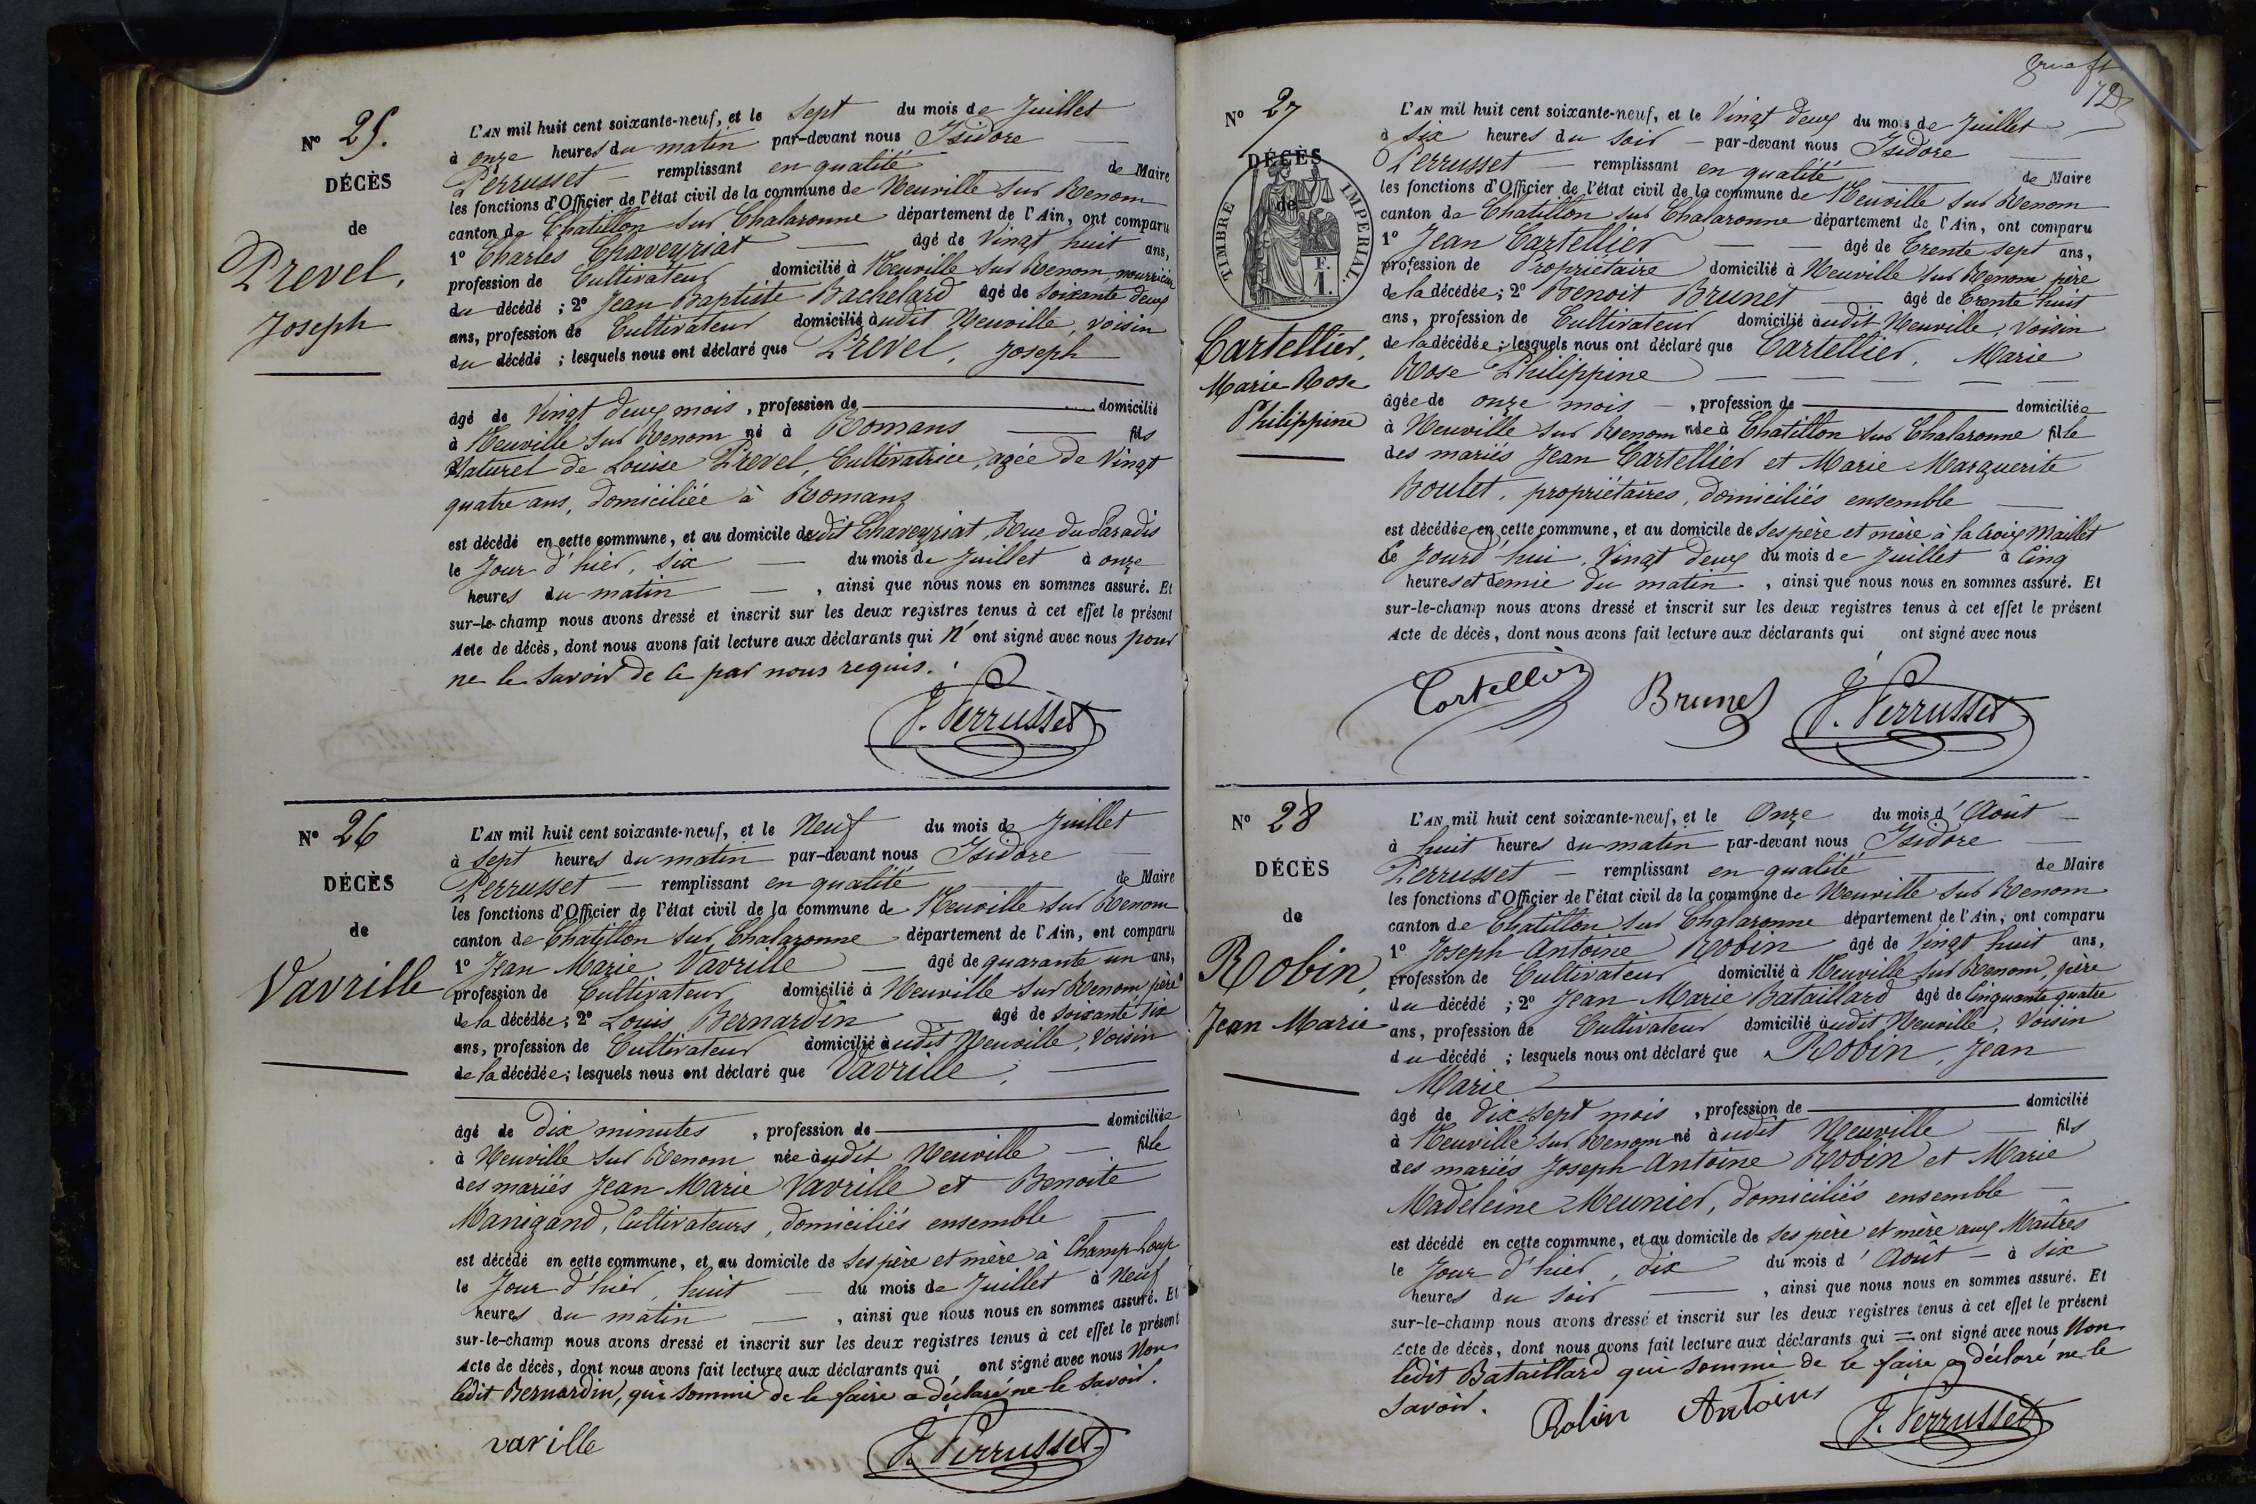 N° 25.
DÉCÈS
de
Prevel,
Joseph
L'AN mil huit cent soixante-neuf, et le sept du mois de Juillet
à onze heures du matin par-devant nous Isidore
Perrusset — remplissant en qualité de Maire
les fonctions d'Officier de l'état civil de la commune de Neuville sur Renom
canton de Chatillon sur Chalaronne département de l'Ain, ont comparu
1° Charles Chaveyriat — âgé de Vingt huit ans,
profession de Cultivateur domicilié à Neuville sur Renom nourricier
du décédé ; 2° Jean Baptiste Bachelard âgé de soixante deux
ans, profession de Cultivateur domicilié audit Neuville, voisin
du décédé ; lesquels nous ont déclaré que Prevel, Joseph
âgé de Vingt deux mois, profession de — domicilié
à Neuville sur Renom né à Romans — fils
Naturel de Louise Prevel, Cultivatrice, agée de Vingt
quatre ans, domiciliée à Romans
est décédé en cette commune, et au domicile dudit Chaveyriat, Rue du Paradis
le Jour d'hier, six — du mois de Juillet à onze
heures du matin — , ainsi que nous nous en sommes assuré. Et
sur-le-champ nous avons dressé et inscrit sur les deux registres tenus à cet effet le présent
Acte de décès, dont nous avons fait lecture aux déclarants qui n'ont signé avec nous pour
ne le savoir de ce par nous requis.
J. Perrusset
N° 26
DÉCÈS
de
Vavrille
L'AN mil huit cent soixante-neuf, et le Neuf du mois de Juillet
à sept heures du matin par-devant nous Isidore
Perrusset — remplissant en qualité de Maire
les fonctions d'Officier de l'état civil de la commune de Neuville sur Renom
canton de Chatillon sur Chalaronne département de l'Ain, ont comparu
1° Jean Marie Vavrille — âgé de quarante un ans,
profession de Cultivateur domicilié à Neuville sur Renom, père
de la décédée ; 2° Louis Bernardin — âgé de soixante six
ans, profession de Cultivateur domicilié audit Neuville, Voisin
de la décédée ; lesquels nous ont déclaré que Vavrille, —
âgé de dix minutes , profession de — domiciliée
à Neuville sur Renom née audit Neuville — fille
des mariés Jean Marie Vavrille et Benoite
Manigand, Cultivateurs, domiciliés ensemble —
est décédé en cette commune, et au domicile de ses père et mère à Champ Loup
le Jour d'hier, huit — du mois de Juillet à Neuf
heures du matin — , ainsi que nous nous en sommes assuré. Et
sur-le-champ nous avons dressé et inscrit sur les deux registres tenus à cet effet le présent
Acte de décès, dont nous avons fait lecture aux déclarants qui ont signé avec nous Non
ledit Bernardin, qui sommé de le faire a déclaré ne le savoir.
vavrille
J. Perrusset
72
N° 27
DÉCÈS
de
TIMBRE IMPÉRIAL.
F.
1.
Cartellier,
Marie Rose
Philippine
L'AN mil huit cent soixante-neuf, et le Vingt deux du mois de Juillet
à six heures du soir — par-devant nous Isidore
Perrusset — remplissant en qualité de Maire
les fonctions d'Officier de l'état civil de la commune de Neuville sur Renom
canton de Chatillon sur Chalaronne département de l'Ain, ont comparu
1° Jean Cartellier — — âgé de Trente sept ans,
profession de Propriétaire domicilié à Neuville sur Renom, père
de la décédée ; 2° Benoit Brunet — âgé de Trente huit
ans, profession de Cultivateur domicilié audit Neuville, Voisin
de la décédée ; lesquels nous ont déclaré que Cartellier, Marie
Rose Philippine — — — — — —
âgée de onze mois — , profession de — domiciliée
à Neuville sur Renom née à Chatillon sur Chalaronne fille
des mariés Jean Cartellier et Marie Marguerite
Boulet, propriétaires, domiciliés ensemble —
est décédée en cette commune, et au domicile de ses père et mère à la Croix Maillet
Ce Jourd'hui, Vingt deux du mois de Juillet à Cinq
heures et demie du matin , ainsi que nous nous en sommes assuré. Et
sur-le-champ nous avons dressé et inscrit sur les deux registres tenus à cet effet le présent
Acte de décès, dont nous avons fait lecture aux déclarants qui ont signé avec nous
Cartellier Brunet J. Perrusset
N° 28
DÉCÈS
de
Robin,
Jean Marie
L'AN mil huit cent soixante-neuf, et le Onze du mois d'Août —
à huit heures du matin par-devant nous Isidore —
Perrusset — remplissant en qualité de Maire
les fonctions d'Officier de l'état civil de la commune de Neuville sur Renom
canton de Chatillon sur Chalaronne département de l'Ain, ont comparu
1° Joseph Antoine Robin âgé de Vingt huit ans,
profession de Cultivateur domicilié à Neuville sur Renom, père
du décédé ; 2° Jean Marie Bataillard âgé de Cinquante quatre
ans, profession de Cultivateur domicilié audit Neuville, Voisin
du décédé ; lesquels nous ont déclaré que Robin, Jean
Marie —
âgé de dix sept mois , profession de — domicilié
à Neuville sur Renom né audit Neuville — fils
des mariés Joseph Antoine Robin et Marie
Madeleine Meunier, domiciliés ensemble —
est décédé en cette commune, et au domicile de ses père et mère aux Maîtres
le Jour d'hier, dix du mois d'Août — à six
heures du soir — , ainsi que nous nous en sommes assuré. Et
sur-le-champ nous avons dressé et inscrit sur les deux registres tenus à cet effet le présent
Acte de décès, dont nous avons fait lecture aux déclarants qui = ont signé avec nous Non
ledit Bataillard qui sommé de le faire a déclaré ne le
savoir.
Robin Antoine J. Perrusset